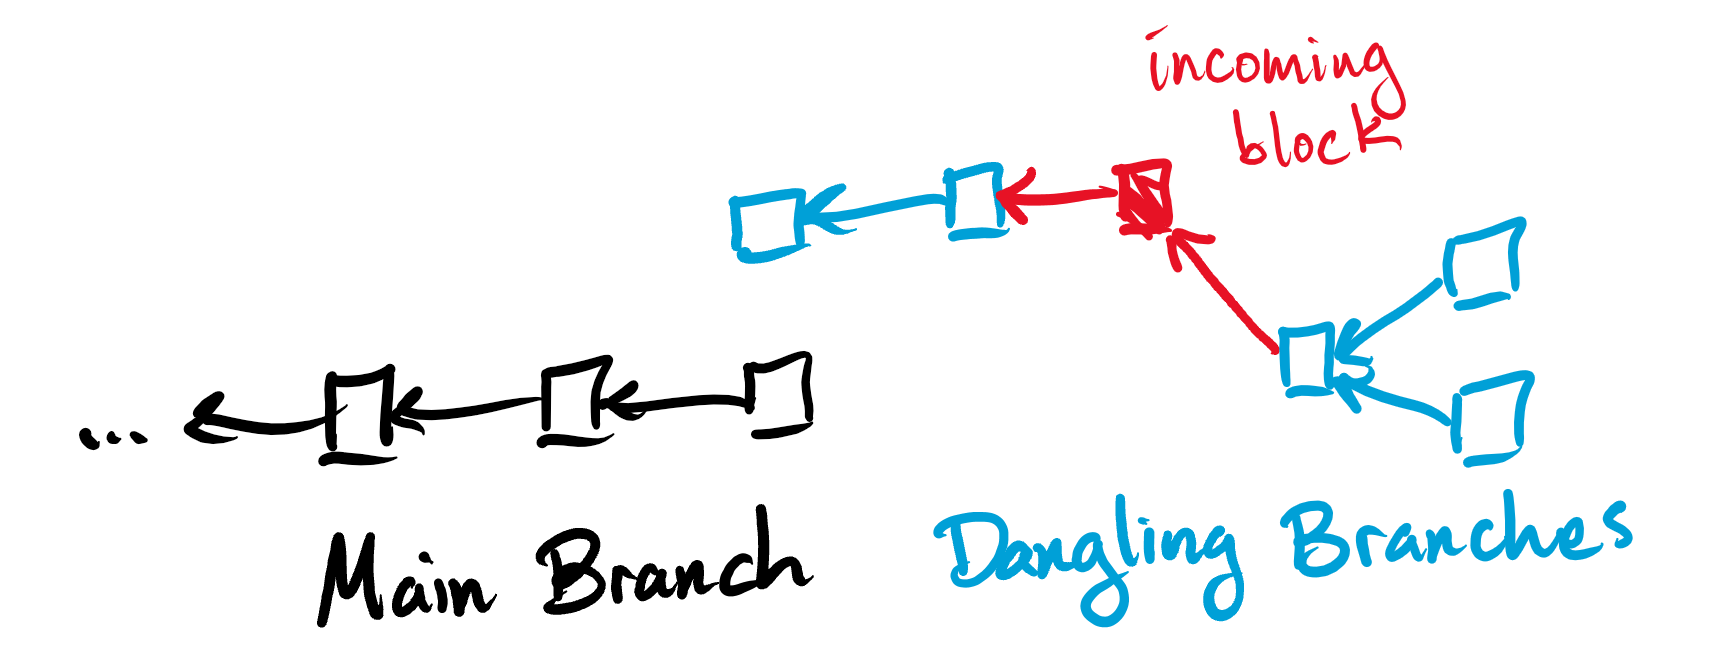 incoming
block
...
Main Branch
Dangling Branches